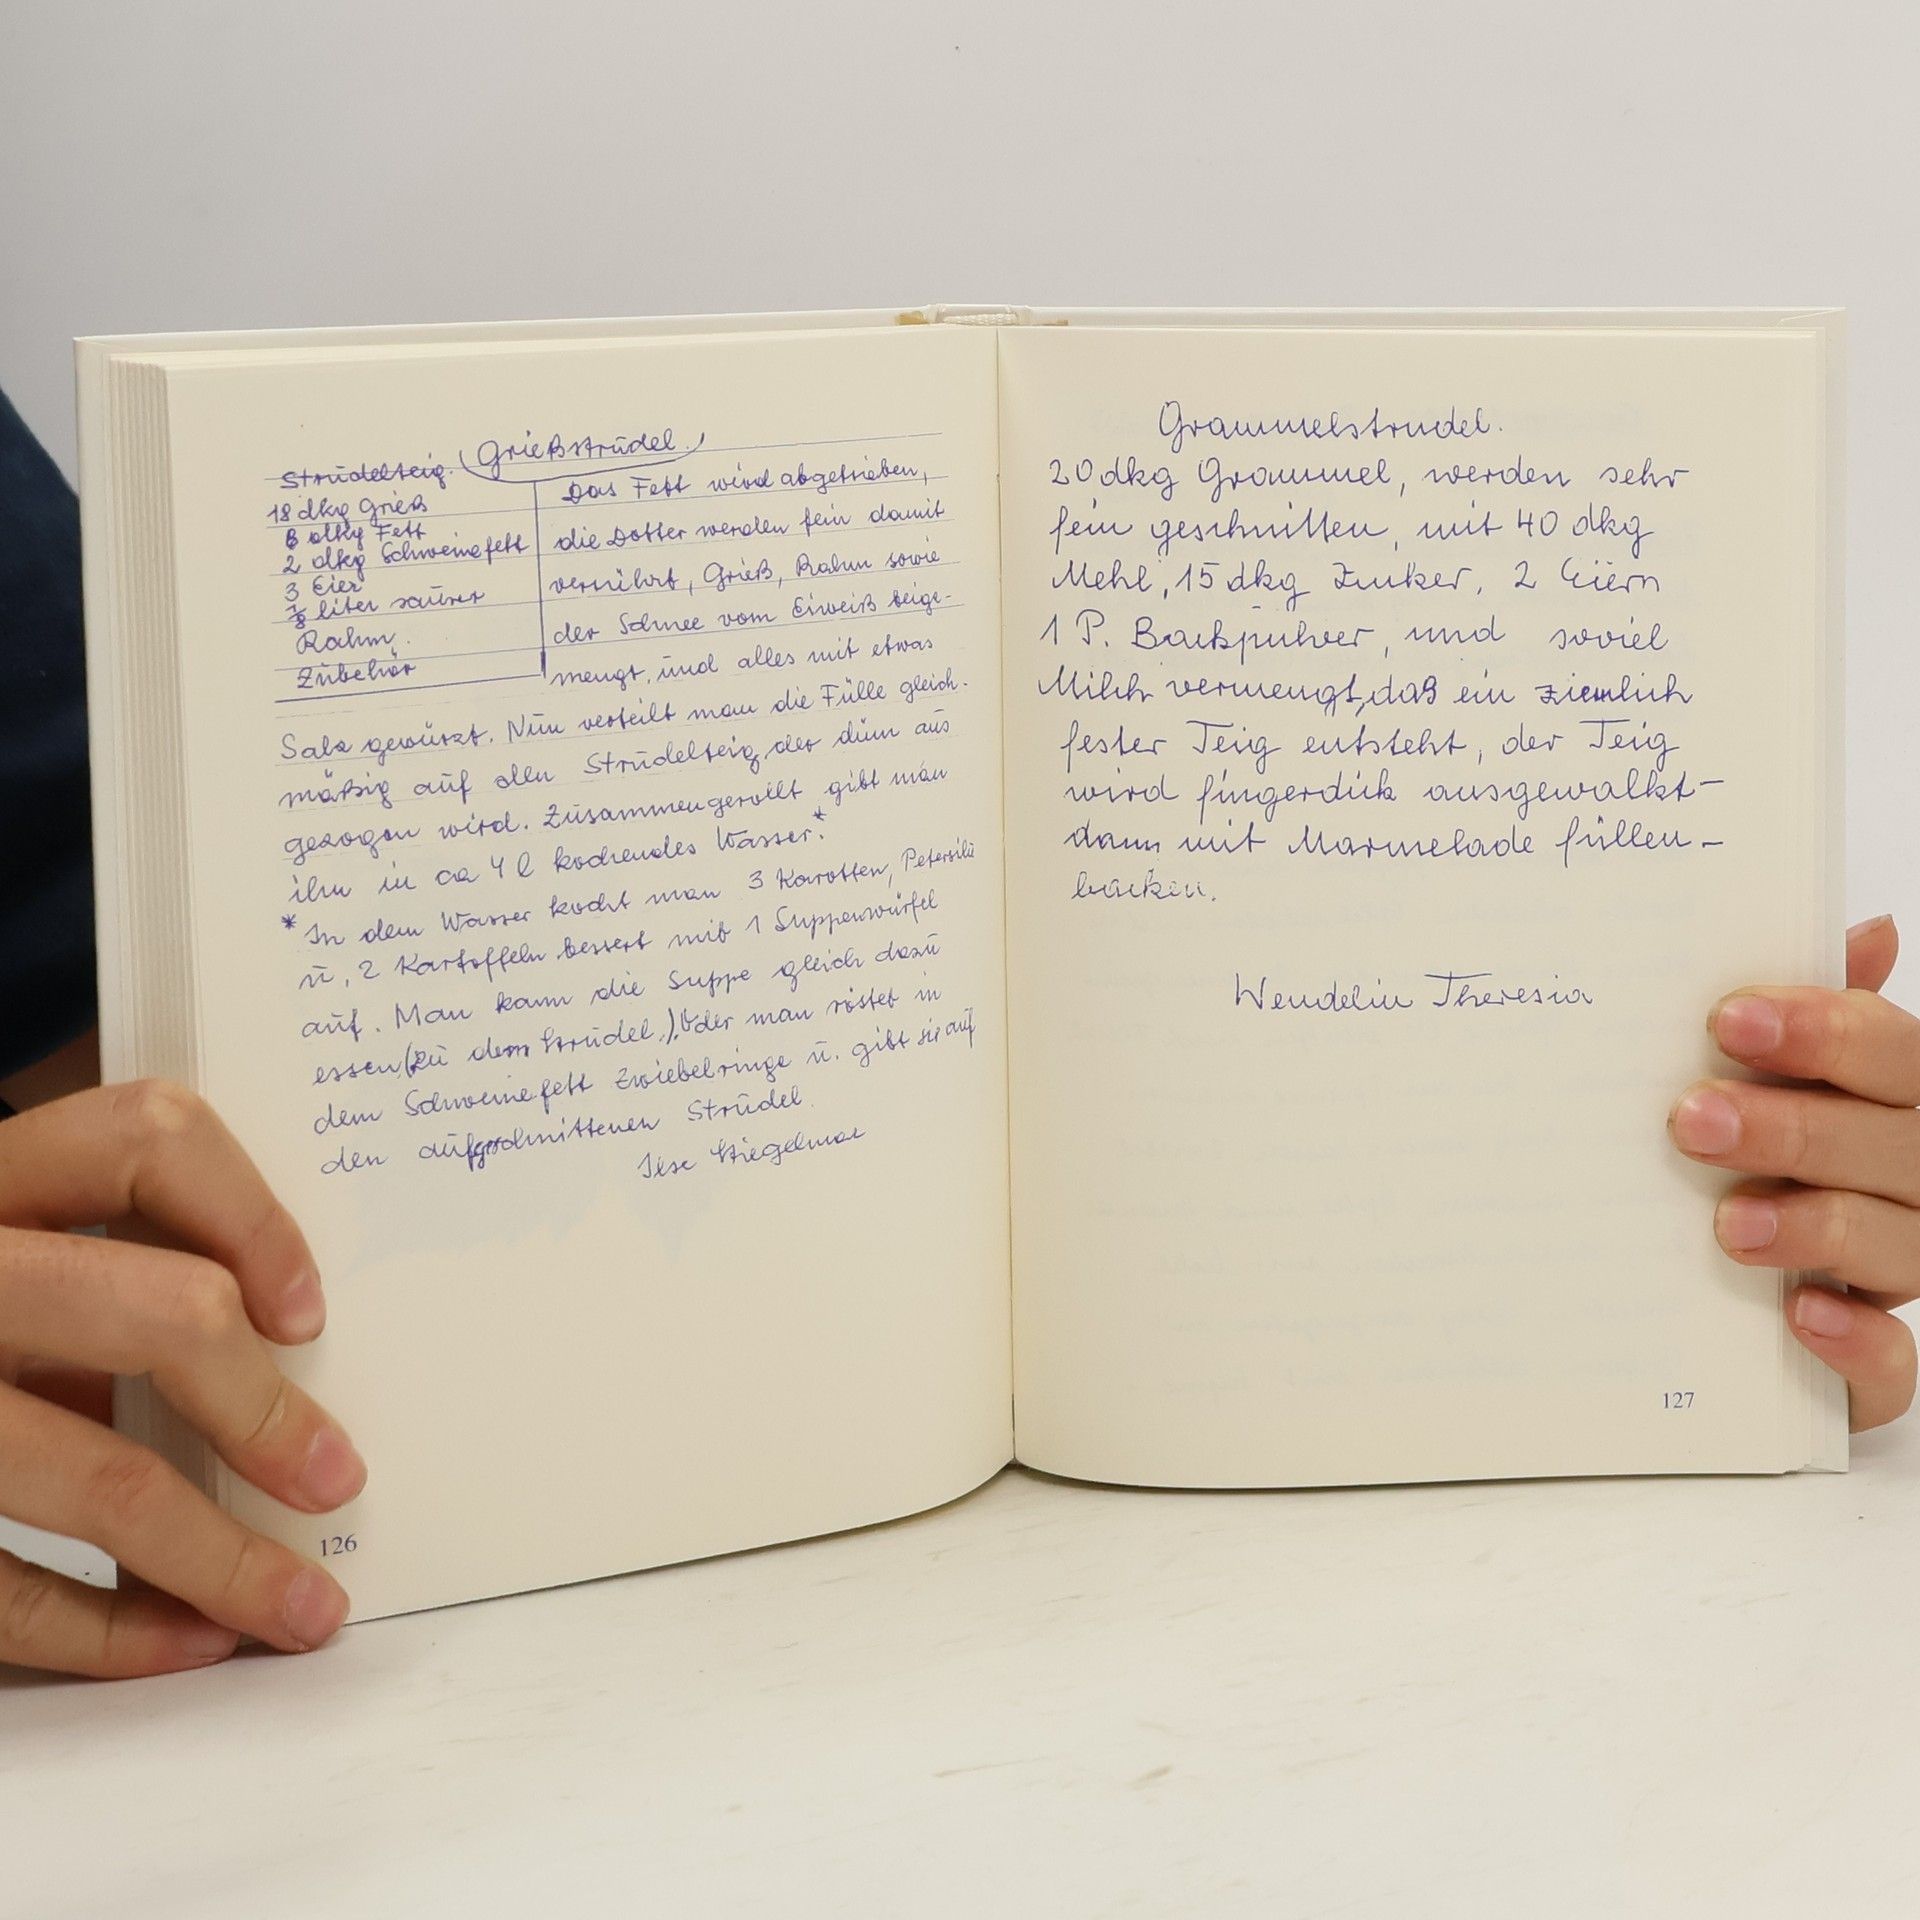 Grießstrudel.
Strudelteig.
18 dkg Grieß
8 dkg Fett
2 dkg Schweinefett
3 Eier
1/8 liter saurer
Rahm.
Zubehör
Das Fett wird abgetrieben,
die Dotter werden fein damit
verrührt, Grieß, Rahm sowie
der Schnee vom Eiweiß beige-
mengt, und alles mit etwas
Salz gewürzt. Nun verteilt man die Fülle gleich-
mäßig auf den Strudelteig, der dünn aus
gezogen wird. Zusammengerollt gibt man
ihn in ca 4 l kochendes Wasser.*
* In dem Wasser kocht man 3 Karotten, Petersilie
u, 2 Kartoffeln bessert mit 1 Suppenwürfel
auf. Man kann die Suppe gleich dazu
essen (zu dem Strudel.) Oder man röstet in
dem Schweinefett Zwiebelringe u. gibt sie auf
den aufgeschnittenen Strudel.
Ilse Stiegelmar
126
Grammelstrudel.
20 dkg Grammel, werden sehr
fein geschnitten, mit 40 dkg
Mehl, 15 dkg Zucker, 2 Eiern
1 P. Backpulver, und soviel
Milch vermengt, daß ein ziemlich
fester Teig entsteht, der Teig
wird fingerdick ausgewalkt –
dann mit Marmelade füllen –
backen.
Wendelin Theresia
127